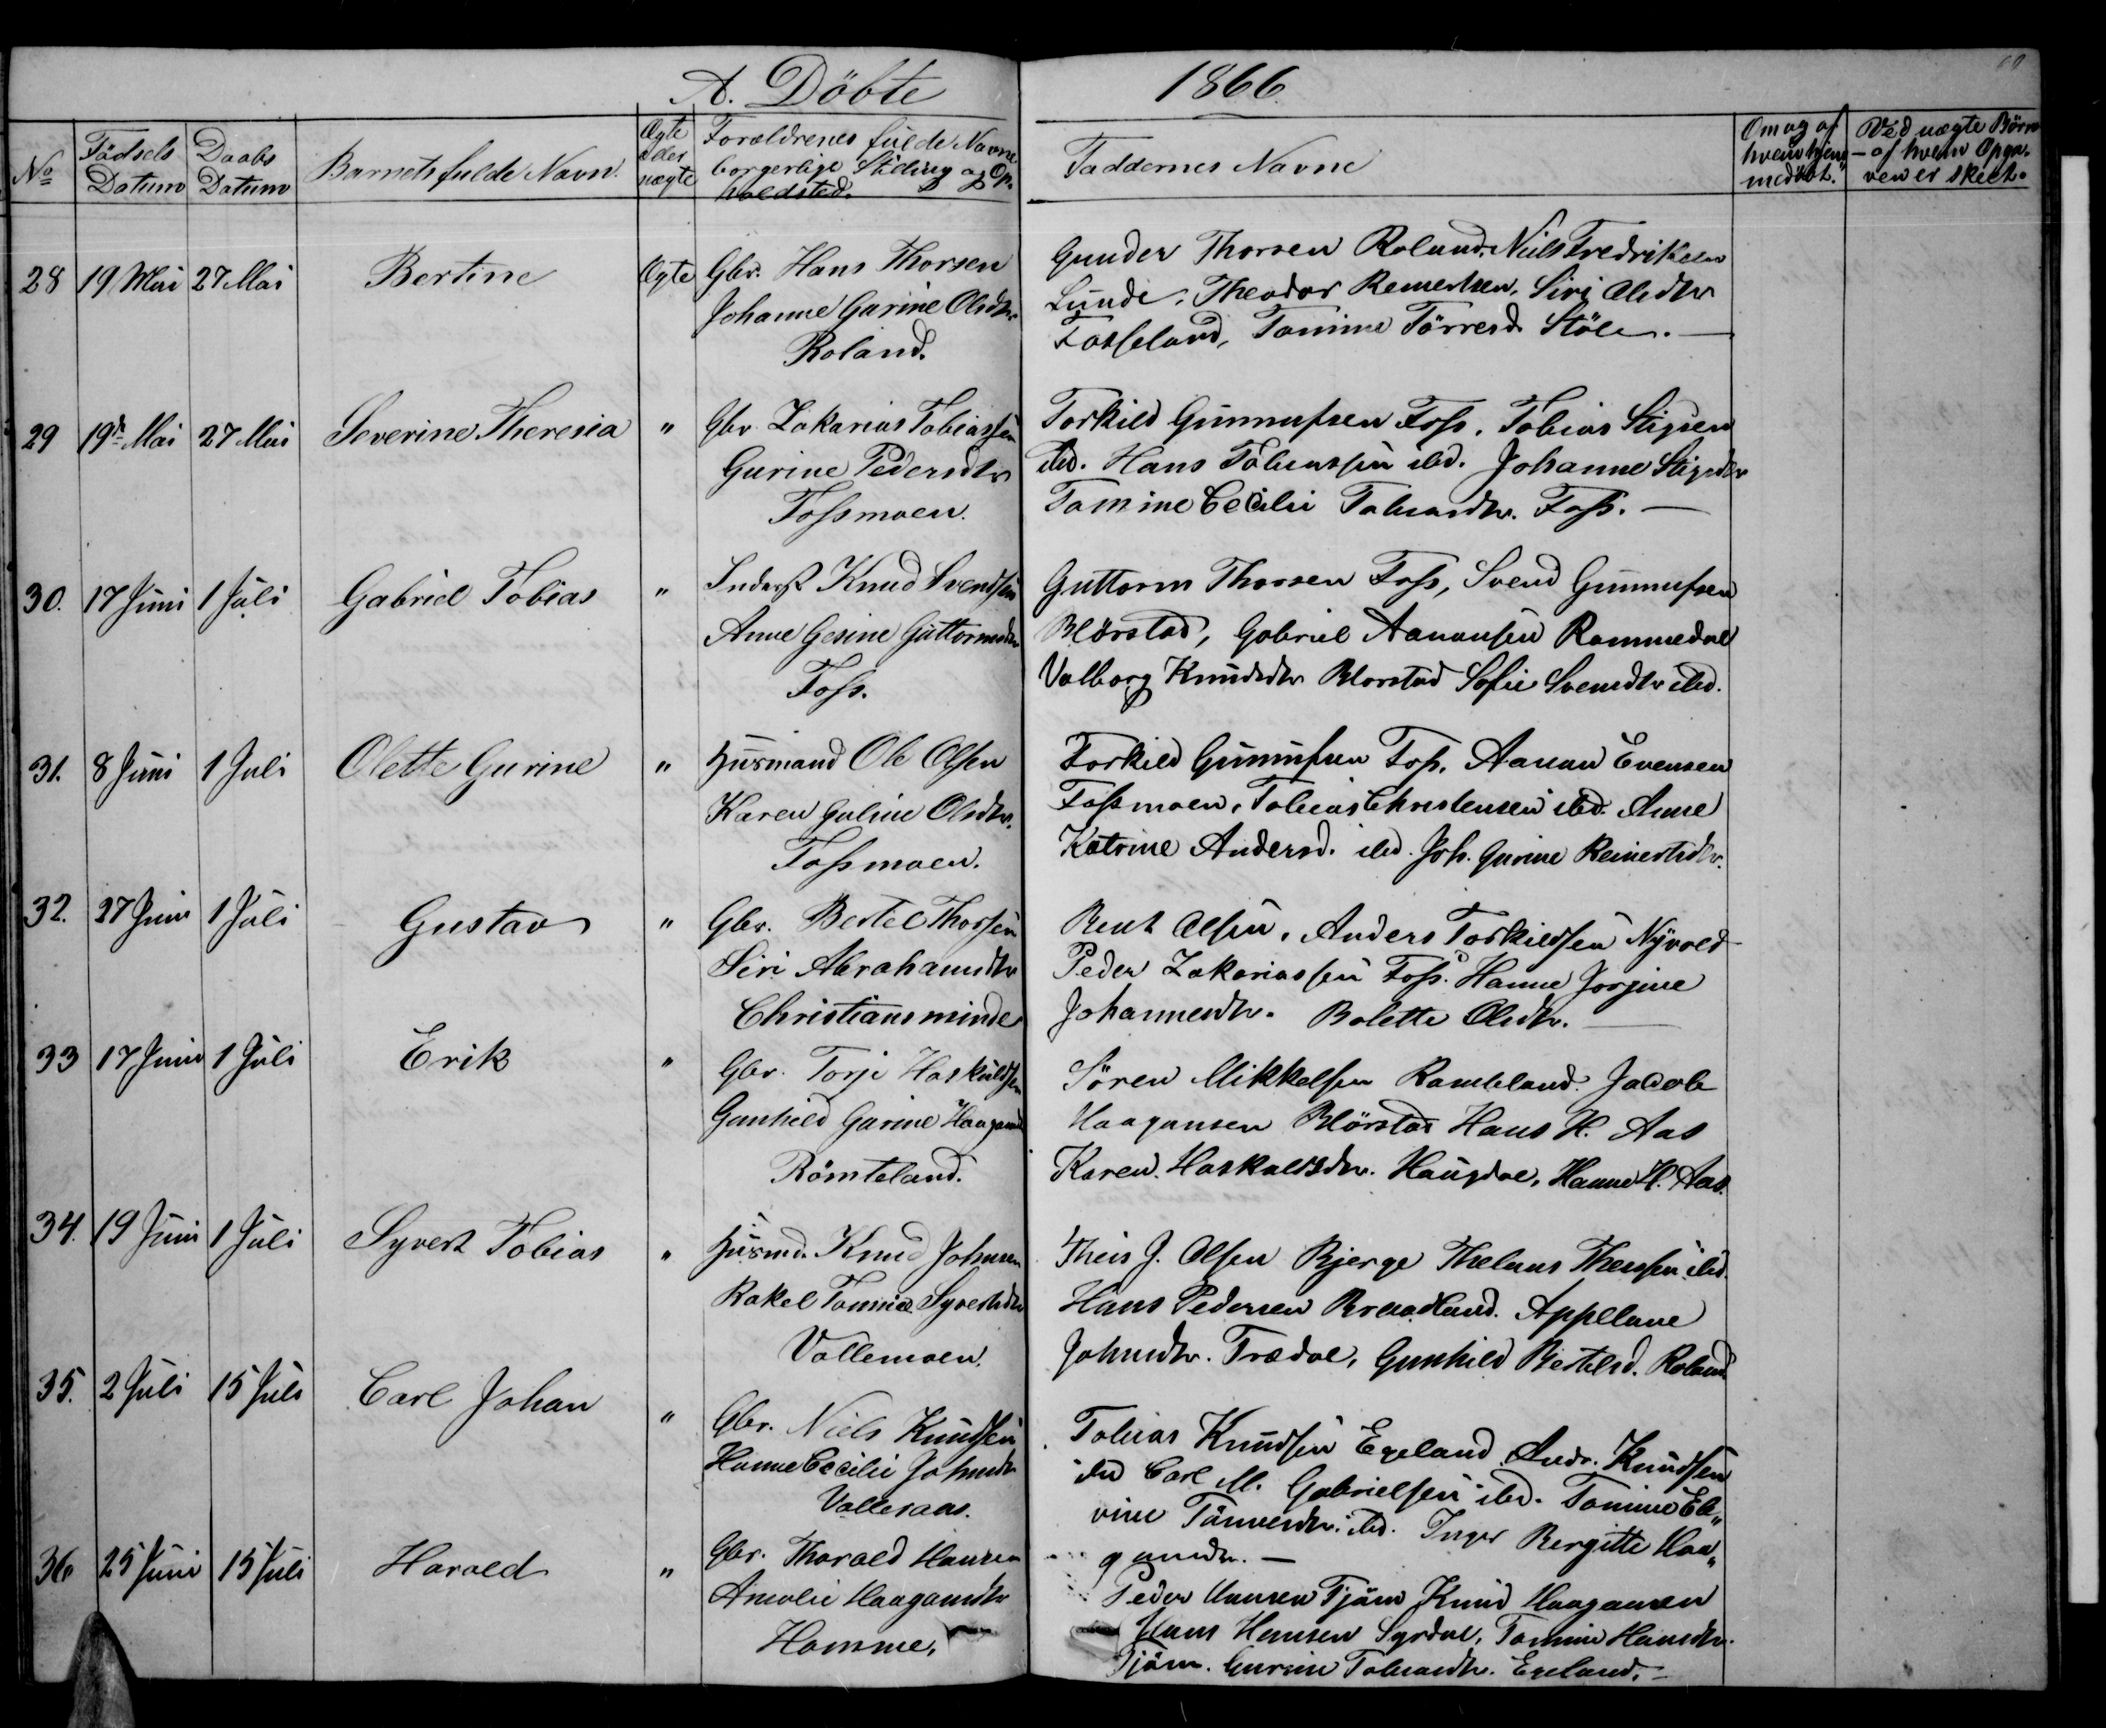 A. Döbte 1866
No
Födsels Datum
Daabs Datum
Barnets fulde Navn.
Ægte eller uægte
Forældrenes fulde Navne borgerlige Stilling og Opholdsted.
Faddernes Navne
Om og af hvem hjemmedøbt.
Ved uægte Börn – af hvem Opgaven er skeet.
28 19 Mai 27 Mai Bertine Ægte Gbr. Hans Thorsen
Johanne Garine Olsdtr
Roland.
Gunder Thorsen Roland, Niels Fredriksen
Lunde, Theodor Reinertsen, Siri Olsdtr
Fosseland, Tomine Törresd. Støle. —
29 19de Mai 27 Mai Severine Theresia " Gbr. Zakarias Tobiassen
Gurine Pedersdtr
Fossmoen.
Torkild Gunnufsen Foss, Tobias Stigsen
ibd. Hans Tobiassen ibd. Johanne Stigsdtr
Tomine Cecilie Tobiasdtr. Foss. —
30. 17 Juni 1 Juli Gabriel Tobias " Inderst Knud Svendsen
Anne Gesine Guttormsdtr
Foss.
Guttorm Thorsen Foss, Svend Gunnufsen
Blörstad, Gabriel Aanonsen Rommedal
Valborg Knudsdtr Blorstad Sofie Svendtr ibd.
31. 8 Juni 1 Juli Olette Gurine " Husmand Ole Olsen
Karen Guline Olsdtr.
Fossmoen.
Torkild Gunnufsen Foss, Aanon Evensen
Fossmoen, Tobias Christensen ibd. Anne
Katrine Andersd. ibd. Joh. Gurine Reinertsdtr.
32. 27 Juni 1 Juli Gustav " Gbr. Bertel Thorsen
Siri Abrahamsdtr
Christiansminde
Bent Olsen, Anders Torkildsen Nyvold
Peder Zakariassen Foss. Hanne Jorgine
Johannesdtr. Bolette Olsdtr. —
33 17 Juni 1 Juli Erik " Gbr. Torje Haskuldsen
Gunhild Garine Haagansd
Römteland.
Sören Mikkelsen Rambland. Jacob
Haagansen Blörstad Hans H. Aas
Karen Haskuldsdtr. Haugdal, Hanne H. Aas.
34. 19 Juni 1 Juli Syvert Tobias " Husmd. Knud Johnsen
Rakel Tomine Syvertsdtr
Vallemoen.
Theis J. Olsen Bjerge ibd.
Hans Pedersen Appelone
Johnsdtr. Trædal, Gunhild Bertelsd. Roland
35. 2 Juli 15 Juli Carl Johan " Gbr. Niels Knudsen
Hanne Cecilie Johnsdtr
Valleraas.
Tobias Knudsen Egeland Andr. Knudsen
ibd Carl M. Gabrielsen ibd. Tomine El„
vine Tönnesdtr. ibd. Inger Bergitte Haa„
gansdtr. —
36 25 Juni 15 Juli Harald " Gbr. Tharald Hansen
Amalie Haagansdtr
Homme.
Peder Hansen Tjöm Knud Haagansen
Hans Hansen Syrdal, Tomine Hansdtr.
Tjöm. Gurine Tobiasdtr. Egeland. —